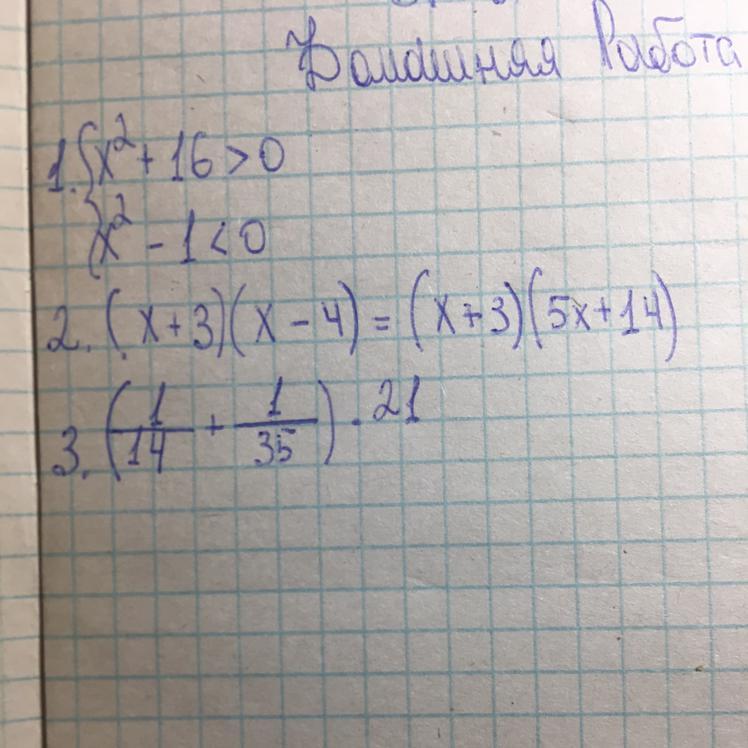 Домашняя Работа
1. { x² + 16 > 0
x² - 1 < 0
2. (x + 3)(x - 4) = (x + 3)(5x + 14)
3. (1/14 + 1/35) · 21